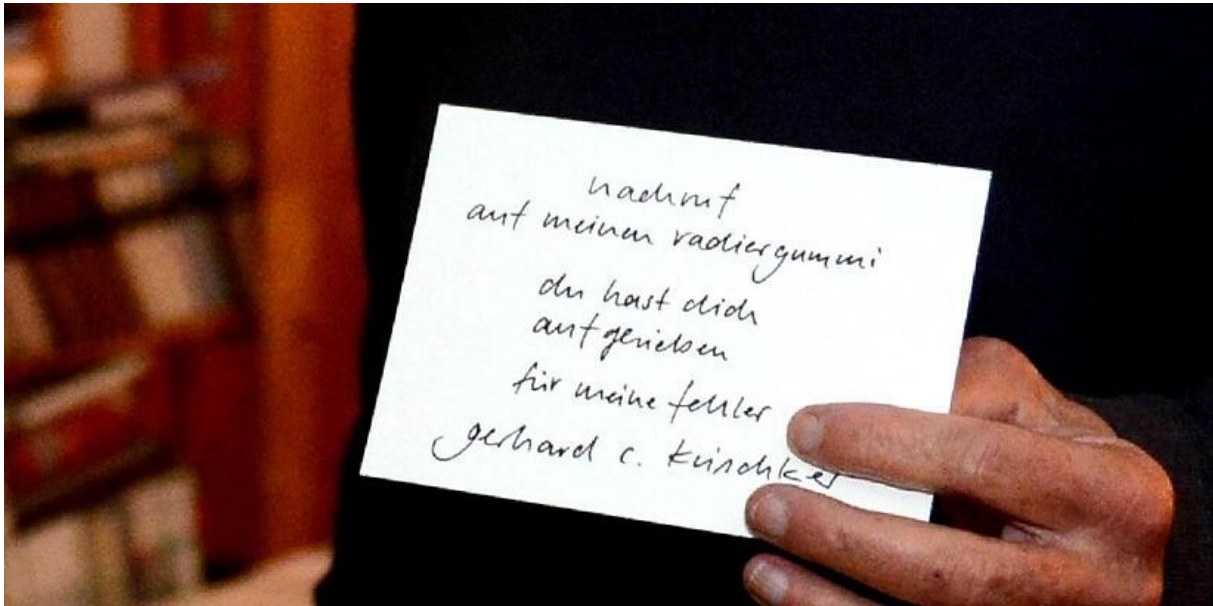 nachruf
auf meinen radiergummi
du hast dich
aufgerieben
für meine fehler
gerhard c. krischker